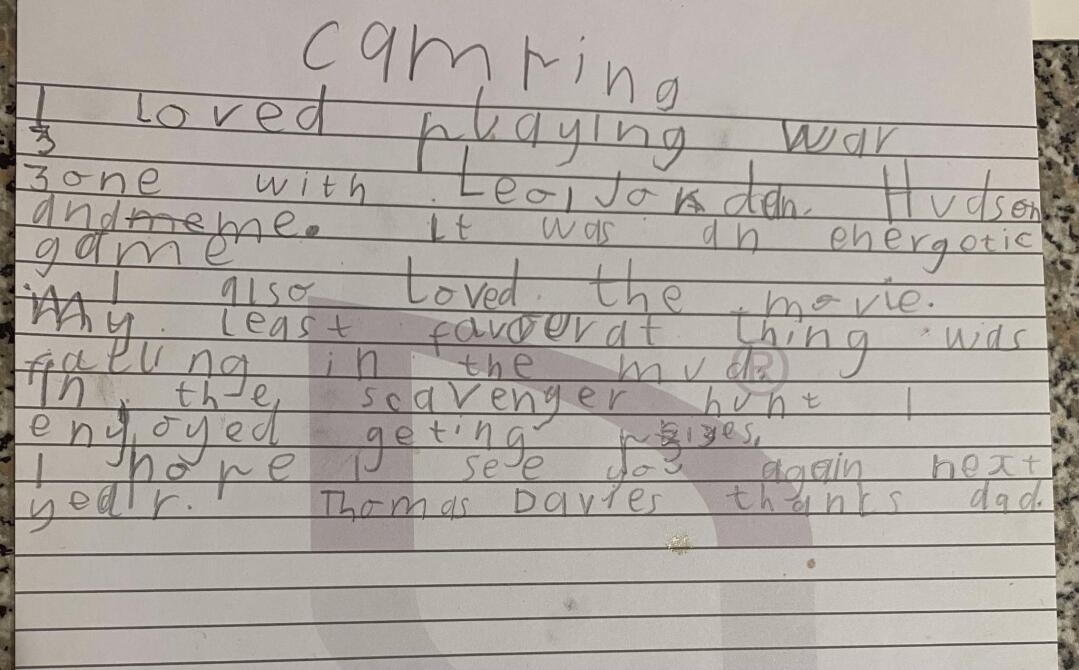 camping
I loved playing war
zone with Leo, Jordan. Hudson
and me. it was an energetic
game
I also loved the movie.
My least faverat thing was
falling in the mud.
In the scavenger hunt I
enyoyed geting prizes.
I hope I see you again next
year. Thomas Davies thanks dad.